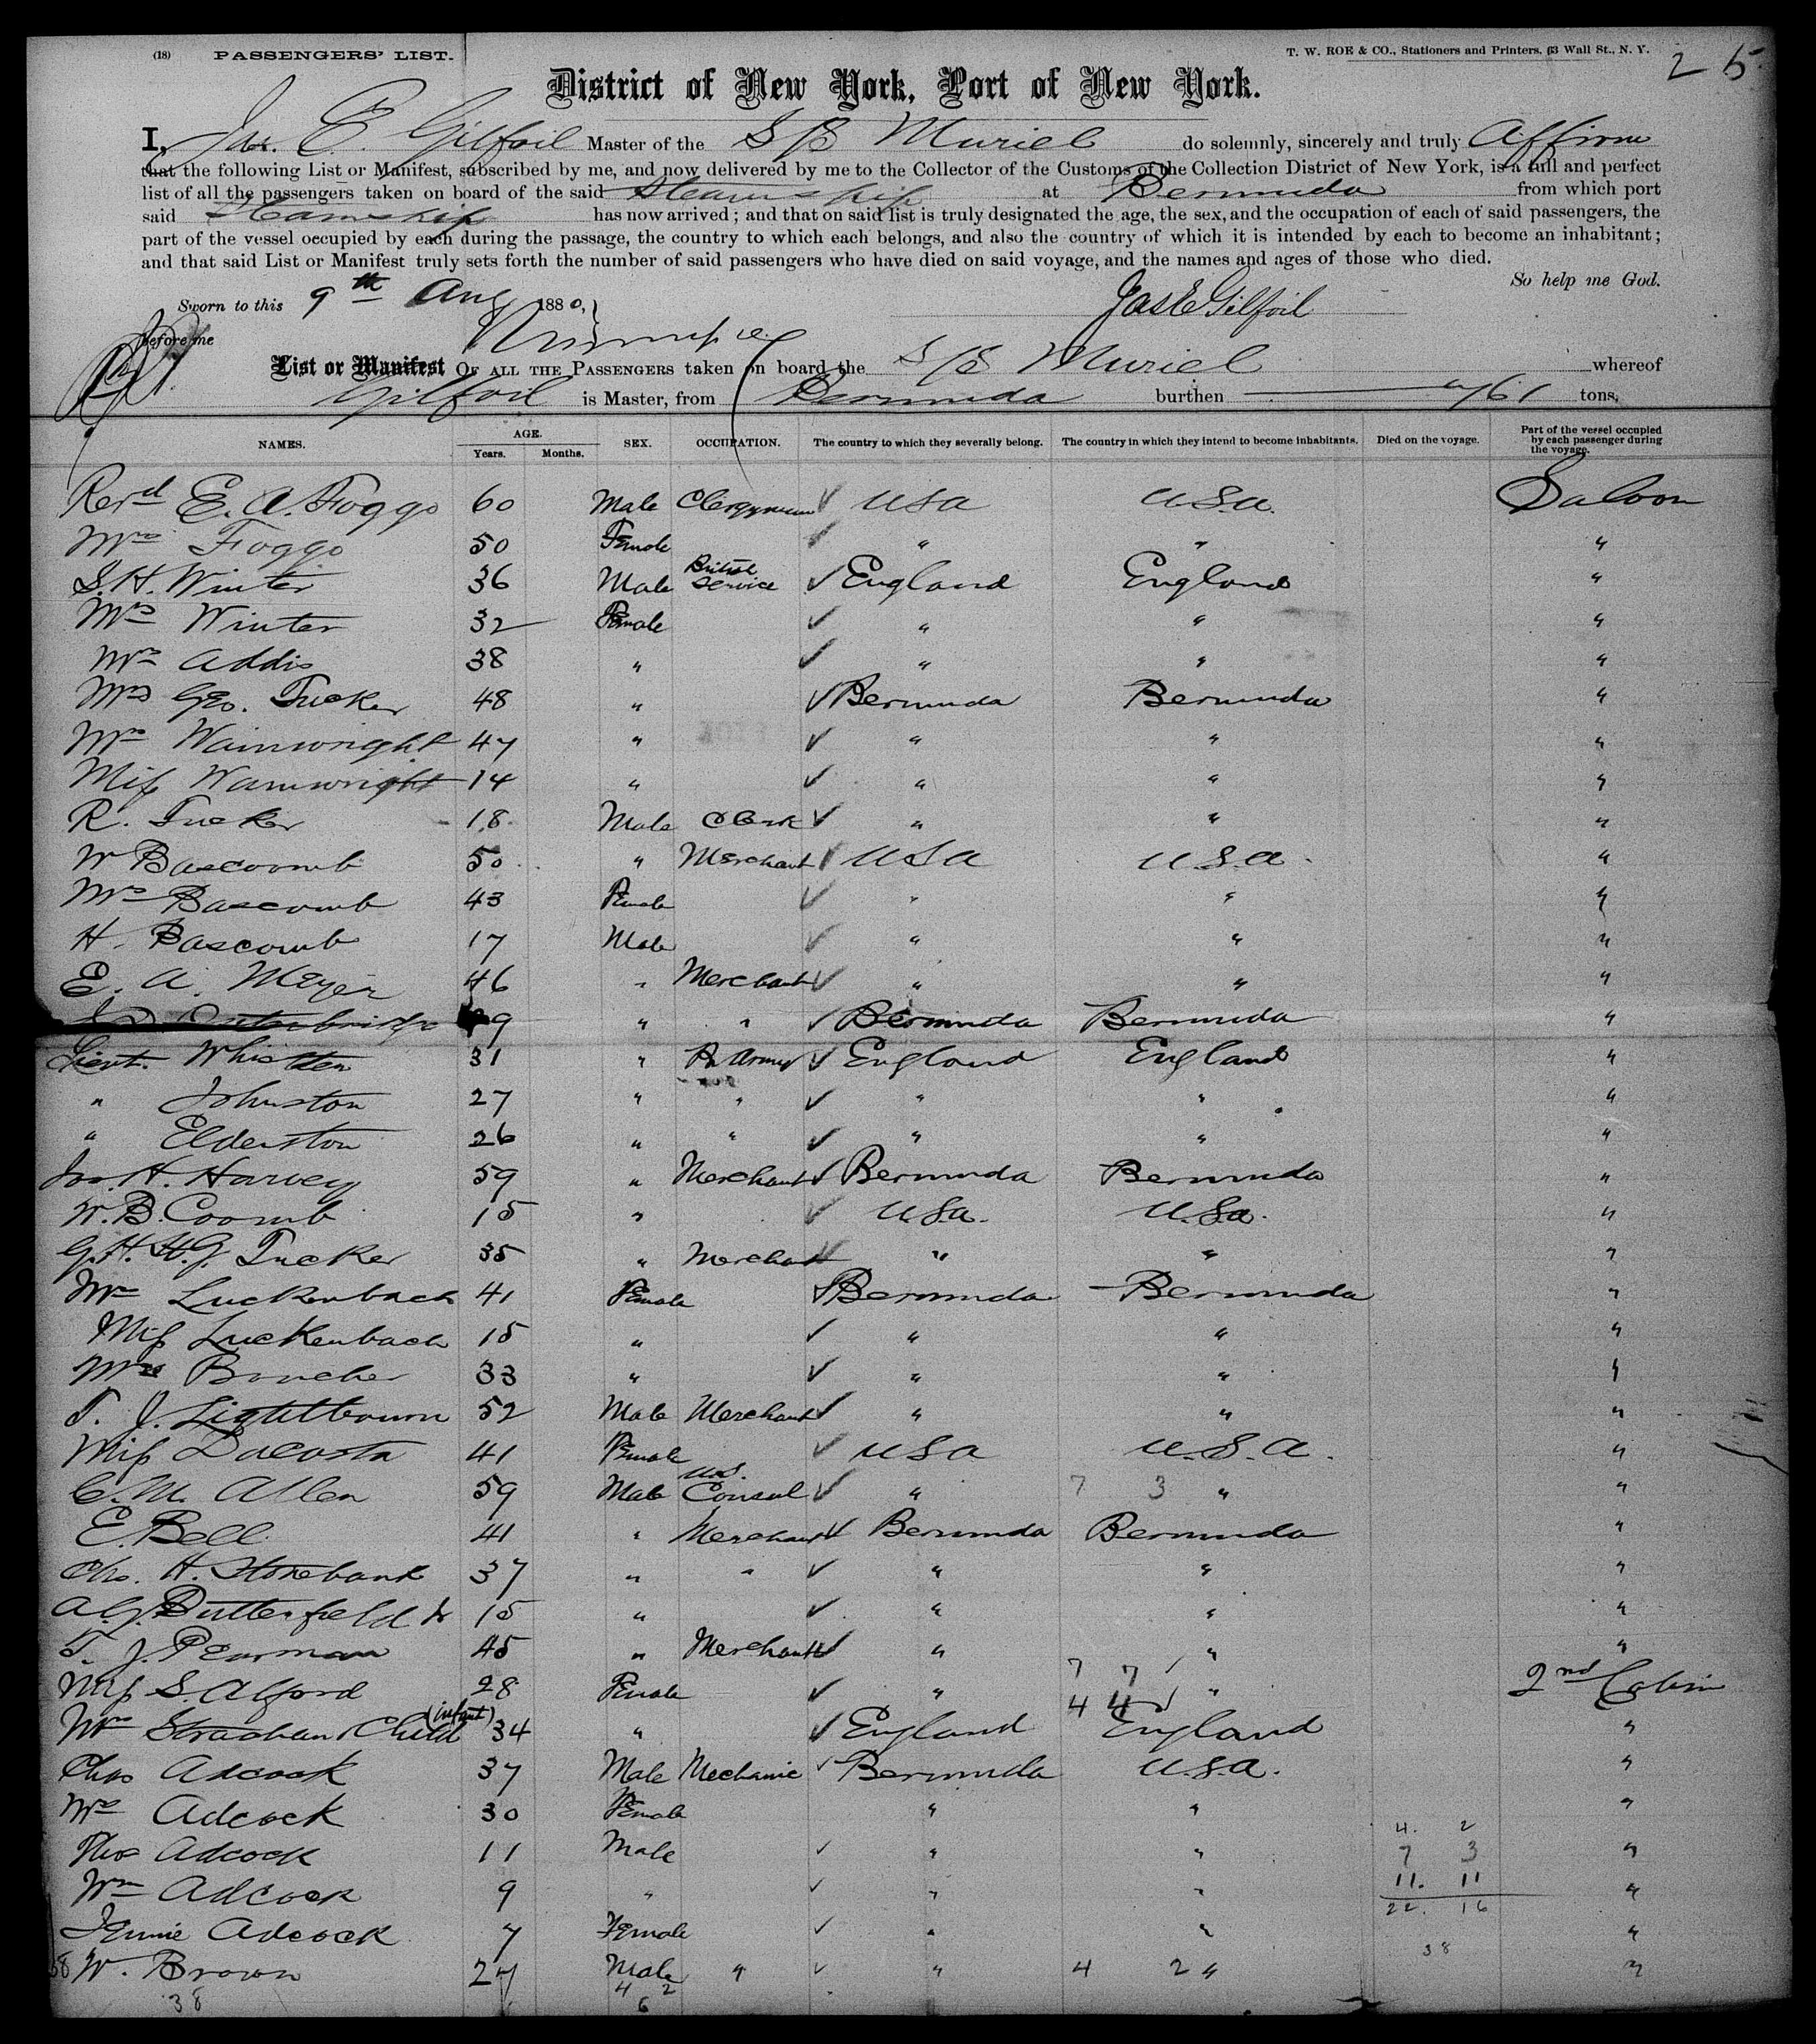 (18) PASSENGERS' LIST.
T. W. ROE & CO., Stationers and Printers, 63 Wall St., N. Y.
2 5
District of New York, Port of New York.
I, Jas. E. Gilfoil Master of the S/S Muriel do solemnly, sincerely and truly Affirm
that the following List or Manifest, subscribed by me, and now delivered by me to the Collector of the Customs of the Collection District of New York, is a full and perfect
list of all the passengers taken on board of the said Steamship at Bermuda from which port
said Steamship has now arrived; and that on said list is truly designated the age, the sex, and the occupation of each of said passengers, the
part of the vessel occupied by each during the passage, the country to which each belongs, and also the country of which it is intended by each to become an inhabitant;
and that said List or Manifest truly sets forth the number of said passengers who have died on said voyage, and the names and ages of those who died.
So help me God.
Sworn to this 9th Aug 1880,
Jas E Gilfoil
Before me
List or Manifest OF ALL THE PASSENGERS taken on board the S/S Muriel whereof
Gilfoil is Master, from Bermuda burthen 761 tons,
NAMES. AGE. Years. Months. SEX. OCCUPATION. The country to which they severally belong. The country in which they intend to become inhabitants. Died on the voyage. Part of the vessel occupied by each passenger during the voyage.
Revd E. A. Foggo 60 Male Clergyman ✓ USA U.S.A. Saloon
Mrs Foggo 50 Female ✓ " " "
S. H. Winter 36 Male British Service ✓ England England "
Mrs Winter 32 Female ✓ " " "
Mrs Addis 38 " ✓ " " "
Mrs Geo. Tucker 48 " ✓ Bermuda Bermuda "
Mrs Wainwright 47 " ✓ " " "
Miss Wainwright 14 " ✓ " " "
R. Tucker 18 Male Clerk ✓ " " "
W Bascomb 50 " Merchant ✓ USA U.S.A. "
Mrs Bascomb 43 Female ✓ " " "
H. Bascomb 17 Male ✓ " " "
E. A. Meyer 46 " Merchant ✓ " " "
Outerbridge " " ✓ Bermuda Bermuda "
Lieut. Whistler 31 " Army ✓ England England "
" Johnston 27 " " ✓ " " "
" Elderston 26 " " ✓ " " "
Jas. H. Harvey 59 " Merchant ✓ Bermuda Bermuda "
W. B. Coomb 15 " ✓ U.S.A. U.S.A. "
G. H. H. G. Tucker 35 " Merchant ✓ " " "
Mrs Luckenbach 41 Female ✓ Bermuda Bermuda "
Miss Luckenbach 15 " ✓ " " "
Mrs Boucher 33 " ✓ " " "
T. J. Lightbourn 52 Male Merchant ✓ " " "
Miss Dacosta 41 Female ✓ USA U.S.A. "
C. M. Allen 59 Male U.S. Consul ✓ " 7 3 " "
E. Bell 41 " Merchant ✓ Bermuda Bermuda "
Chs. H. Stonebank 37 " " ✓ " " "
A. G. Butterfield Jr 15 " ✓ " " "
T. J. Pearman 45 " Merchant ✓ " " "
7 7 ✓
Miss S. Alford 28 Female ✓ " " 2nd Cabin
4 4 ✓
Mrs Strachan & Child (infant) 34 " ✓ England England "
Chas Adcock 37 Male Mechanic ✓ Bermuda U.S.A. "
Mrs Adcock 30 Female " " "
4. 2
Thos Adcock 11 Male ✓ " " 7 3 "
Wm Adcock 9 " ✓ " " 11. 11 "
22. 16
Jennie Adcock 7 Female ✓ " " "
38
38 W. Brown 27 Male " ✓ " 4 2 " "
38 4 2
6